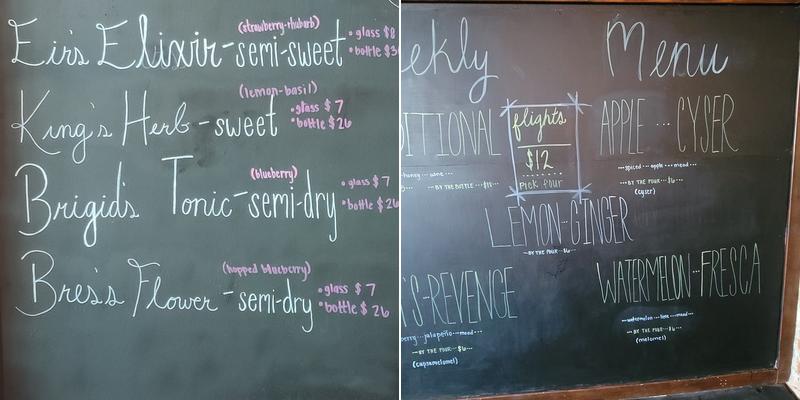 (strawberry-rhubarb)
Eir's Elixir-semi-sweet
• glass $8
• bottle $3
(lemon-basil)
King's Herb-sweet
• glass $7
• bottle $26
(blueberry)
Brigid's Tonic-semi-dry
• glass $7
• bottle $26
(hopped blueberry)
Bres's Flower-semi-dry
• glass $7
• bottle $26
ekly Menu
DITIONAL
honey ... wine
BY THE BOTTLE
flights
$12
Pick four
APPLE ... CYSER
spiced ... apple ... mead
BY THE POUR ... $6
(cyser)
LEMON-GINGER
BY THE POUR $6
'S-REVENGE
erry ... jalapeño ... mead
BY THE POUR ... $6
(capsumelomel)
WATERMELON ... FRESCA
watermelon ... lime ... mead
BY THE POUR ... $6
(melomel)